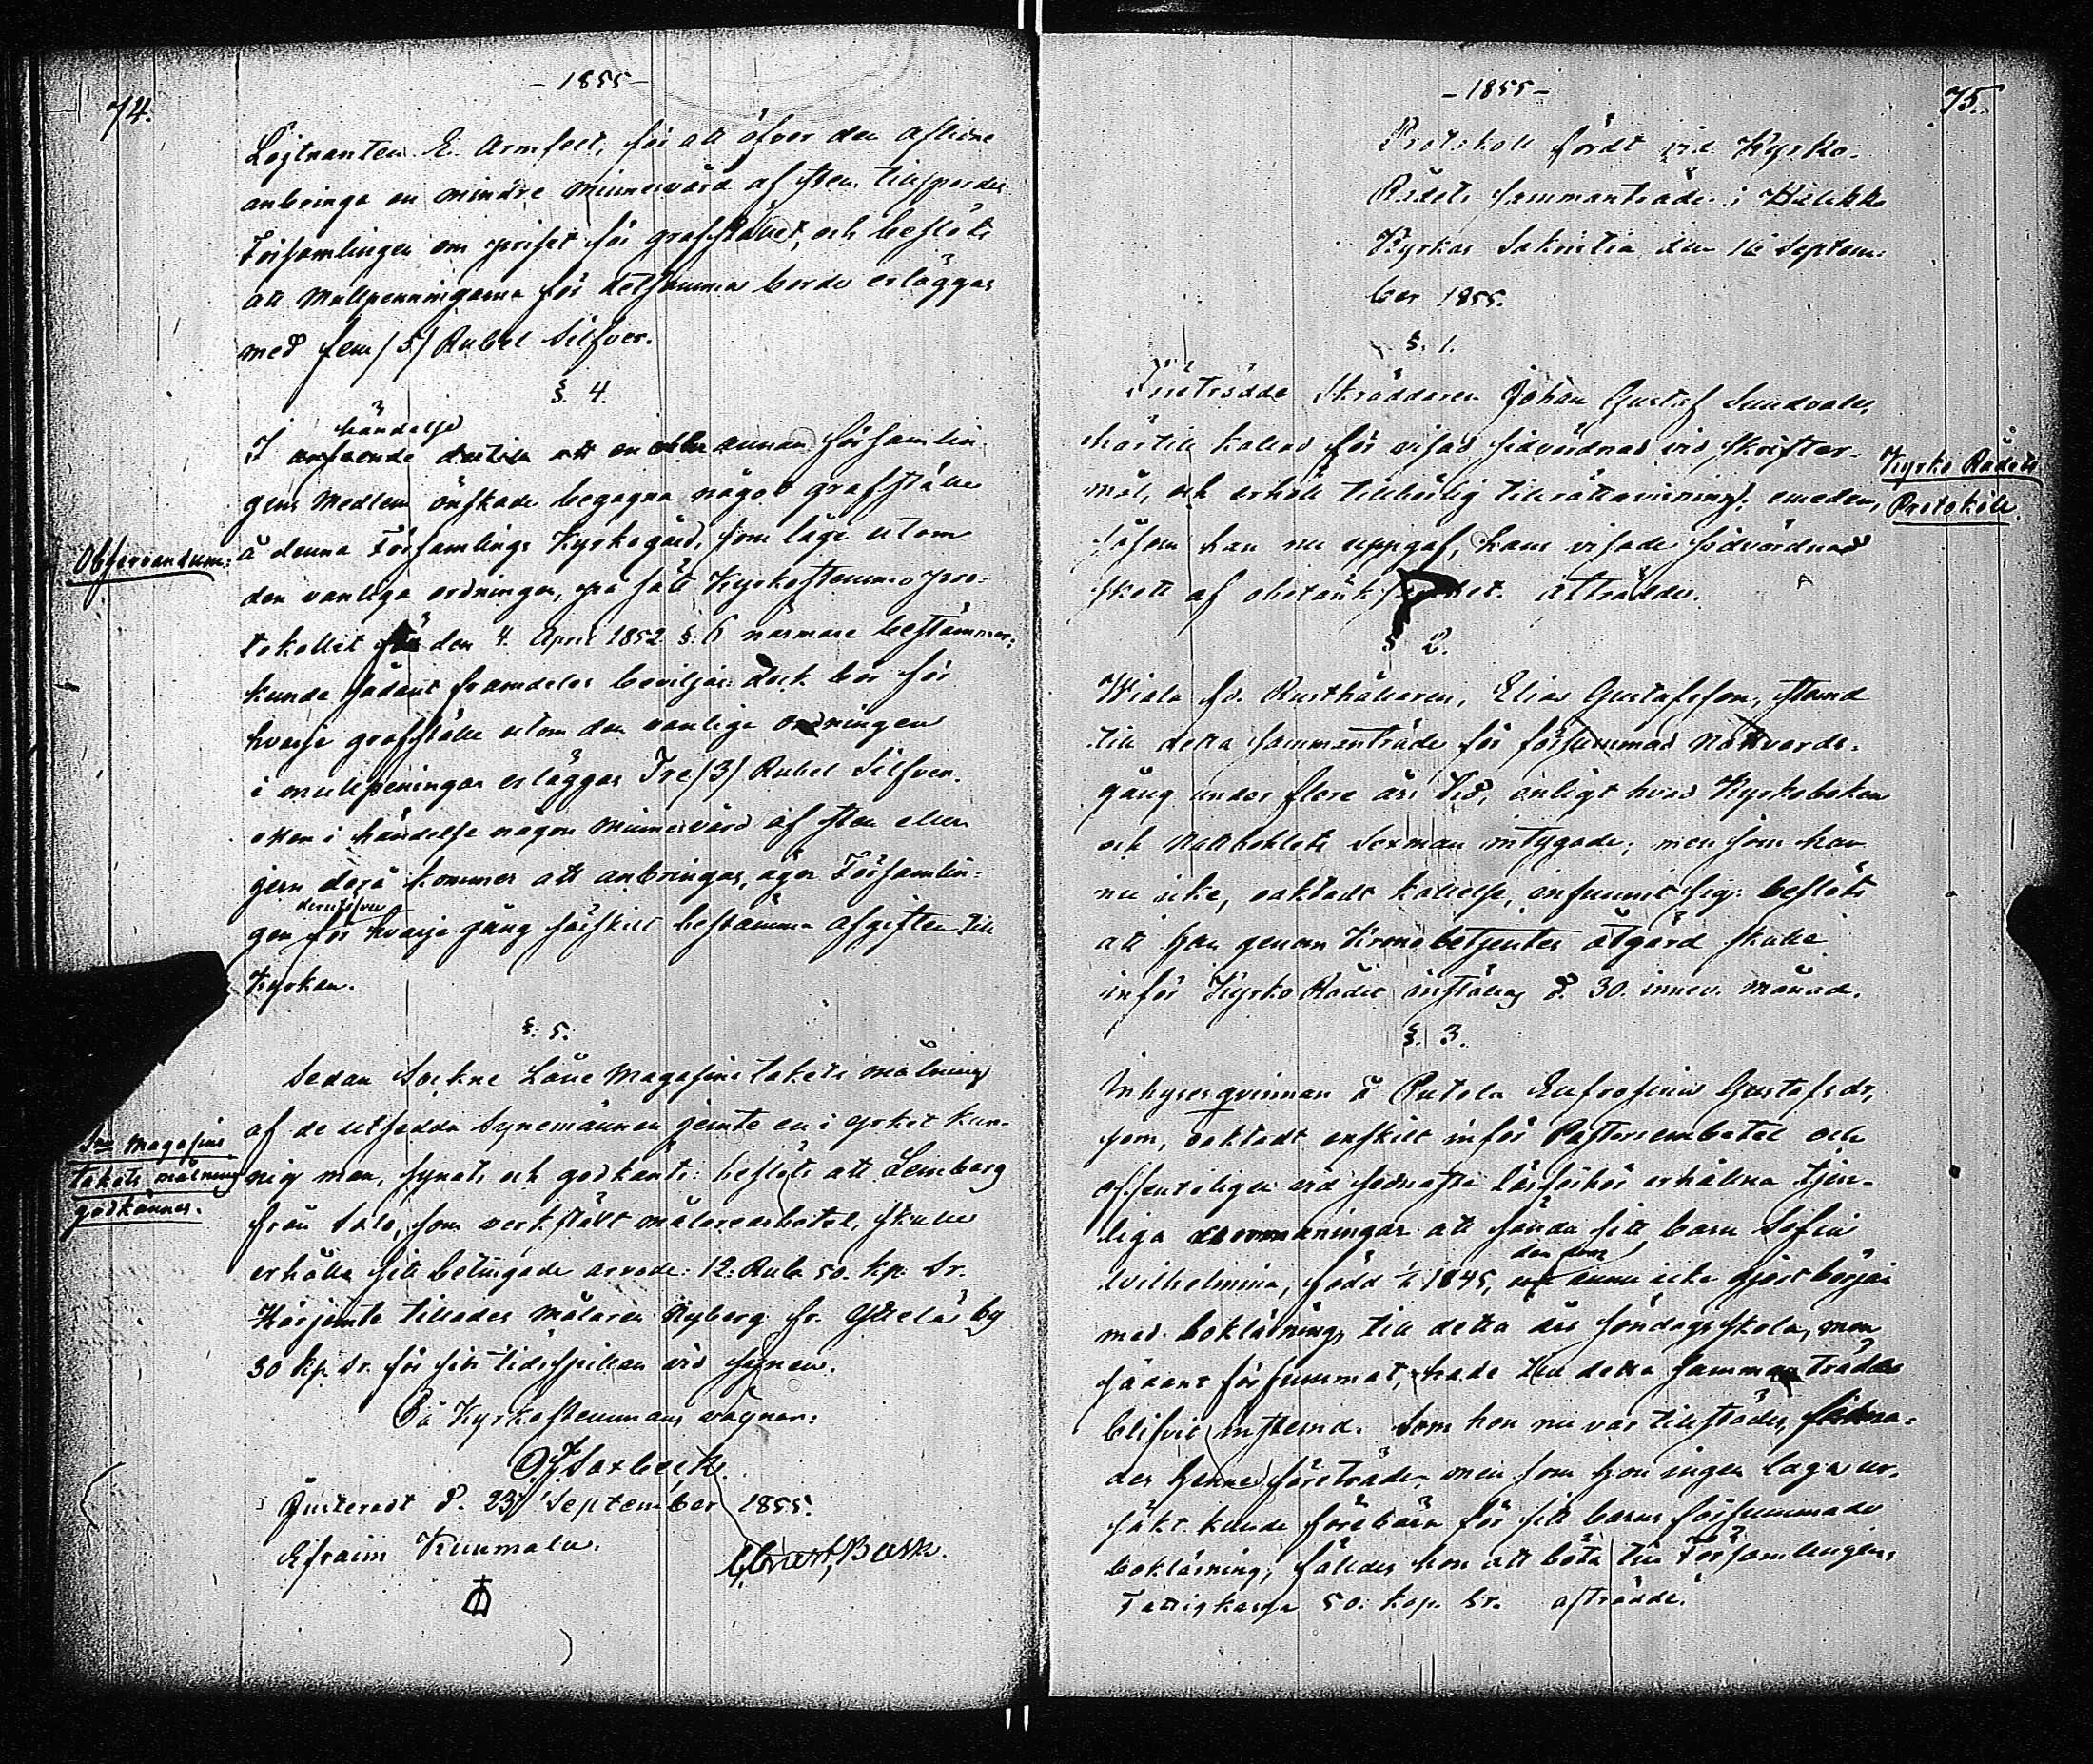 74.
- 1855 -
Löjtnanten E. Armfelt, för att öfver den aflidne
anbringa en mindre minnesvård af sten tillspordes
Församlingen om priset för grafstället, och beslöts
att Mullpenningarna för detsamma borde erläggas
med fem /5/ Rubel Silfver.
§. 4.
händelse
I anseende dertill att en eller annan församlin-
gens Medlem önskade begagna något grafställe
Observandum:
å denna Församlings Kyrkogård, som låge utom
den vanliga ordningen, på sätt Kyrkostämmo pro-
tokollet från den 4. April 1852 §. 6 närmare bestämmer;
kunde sådant framdeles beviljas. Dock bör för
hvarje grafställe utom den vanliga ordningen
i mullpeningar erläggas Tre /3/ Rubel Silfver.
Men i händelse någon Minnesvård af sten eller
jern derå kommer att anbringas, äger Församlin-
derutöfver
gen för hvarje gång särskilt bestämma afgiften till
Kyrkan.
§. 5.
Sedan Sockne Låne Magasins takets målning
af de utsedda Synemännen jemte en i yrket kun-
Sne Magasins
takets målning
godkännes.
nig man, synats och godkänts: beslöts att Lemberg
från Salo, som verkstält målarearbetet, skulle
erhålla sitt betingade arvode: 12. Rub. 50. kp. Sr.
Härjemte tillades målaren Nyberg fr. Yttelä by
30 kp. Sr. för sin tidsspillan vid synen.
På Kyrkostämmans vägnar:
O. J. Saxbeck.
Justeradt d. 23 September 1855.
Efraim Kuumala.
- 1855 -
75.
Protokoll fördt vid Kyrko-
Rådets sammanträde i Halikko
Kyrkas Sakristia den 16 Septem-
ber 1855.
§. 1.
Företrädde Skräddaren Johan Gustaf Sundvall,
härtill kallad för visad sidvördnad vid skrifter-
Kyrko Rådets
Protokoll.
mål, och erhöll tillbörlig tillrättavisning, emedan,
såsom han nu uppgaf, hans visade sidvördnad
skett af obetänksamhet. Afträdde.
§ 2.
Wiala fd. Rusthållaren, Elias Gustafsson, stämd
till detta sammanträde för försummad Nattvards-
gång under flere års tid, enligt hvad Kyrkoboken
och Sexman intygade; men som han
nu icke, oaktadt kallelse, infunnit sig: beslöts
att han genom Kronobetjentes åtgärd skulle
inför Kyrko Rådet inställas d. 30. innev. månad.
§. 3.
Inhyses qvinnan å Putola Eufrosina Gustafsdr,
som, oaktadt enskilt inför Pastorsembetet och
offenteligen vid sednaste läsförhör erhållna tjen-
liga varningar att sända sitt barn Sofia
den som
Wilhelmina, född 1845, ännu icke gjort början
med bokläsning, till detta års söndagsskola, men
sådant försummat, hade till detta sammanträde
blifvit instemd. Som hon nu var tillstädes,
des henne företräde, men som hon ingen laga ur-
säkt kunde förebära för sitt barns försummade
bokläsning, fälldes hon att böta till Församlingens
Fattigkassa 50. kop. Sr. afträdde.